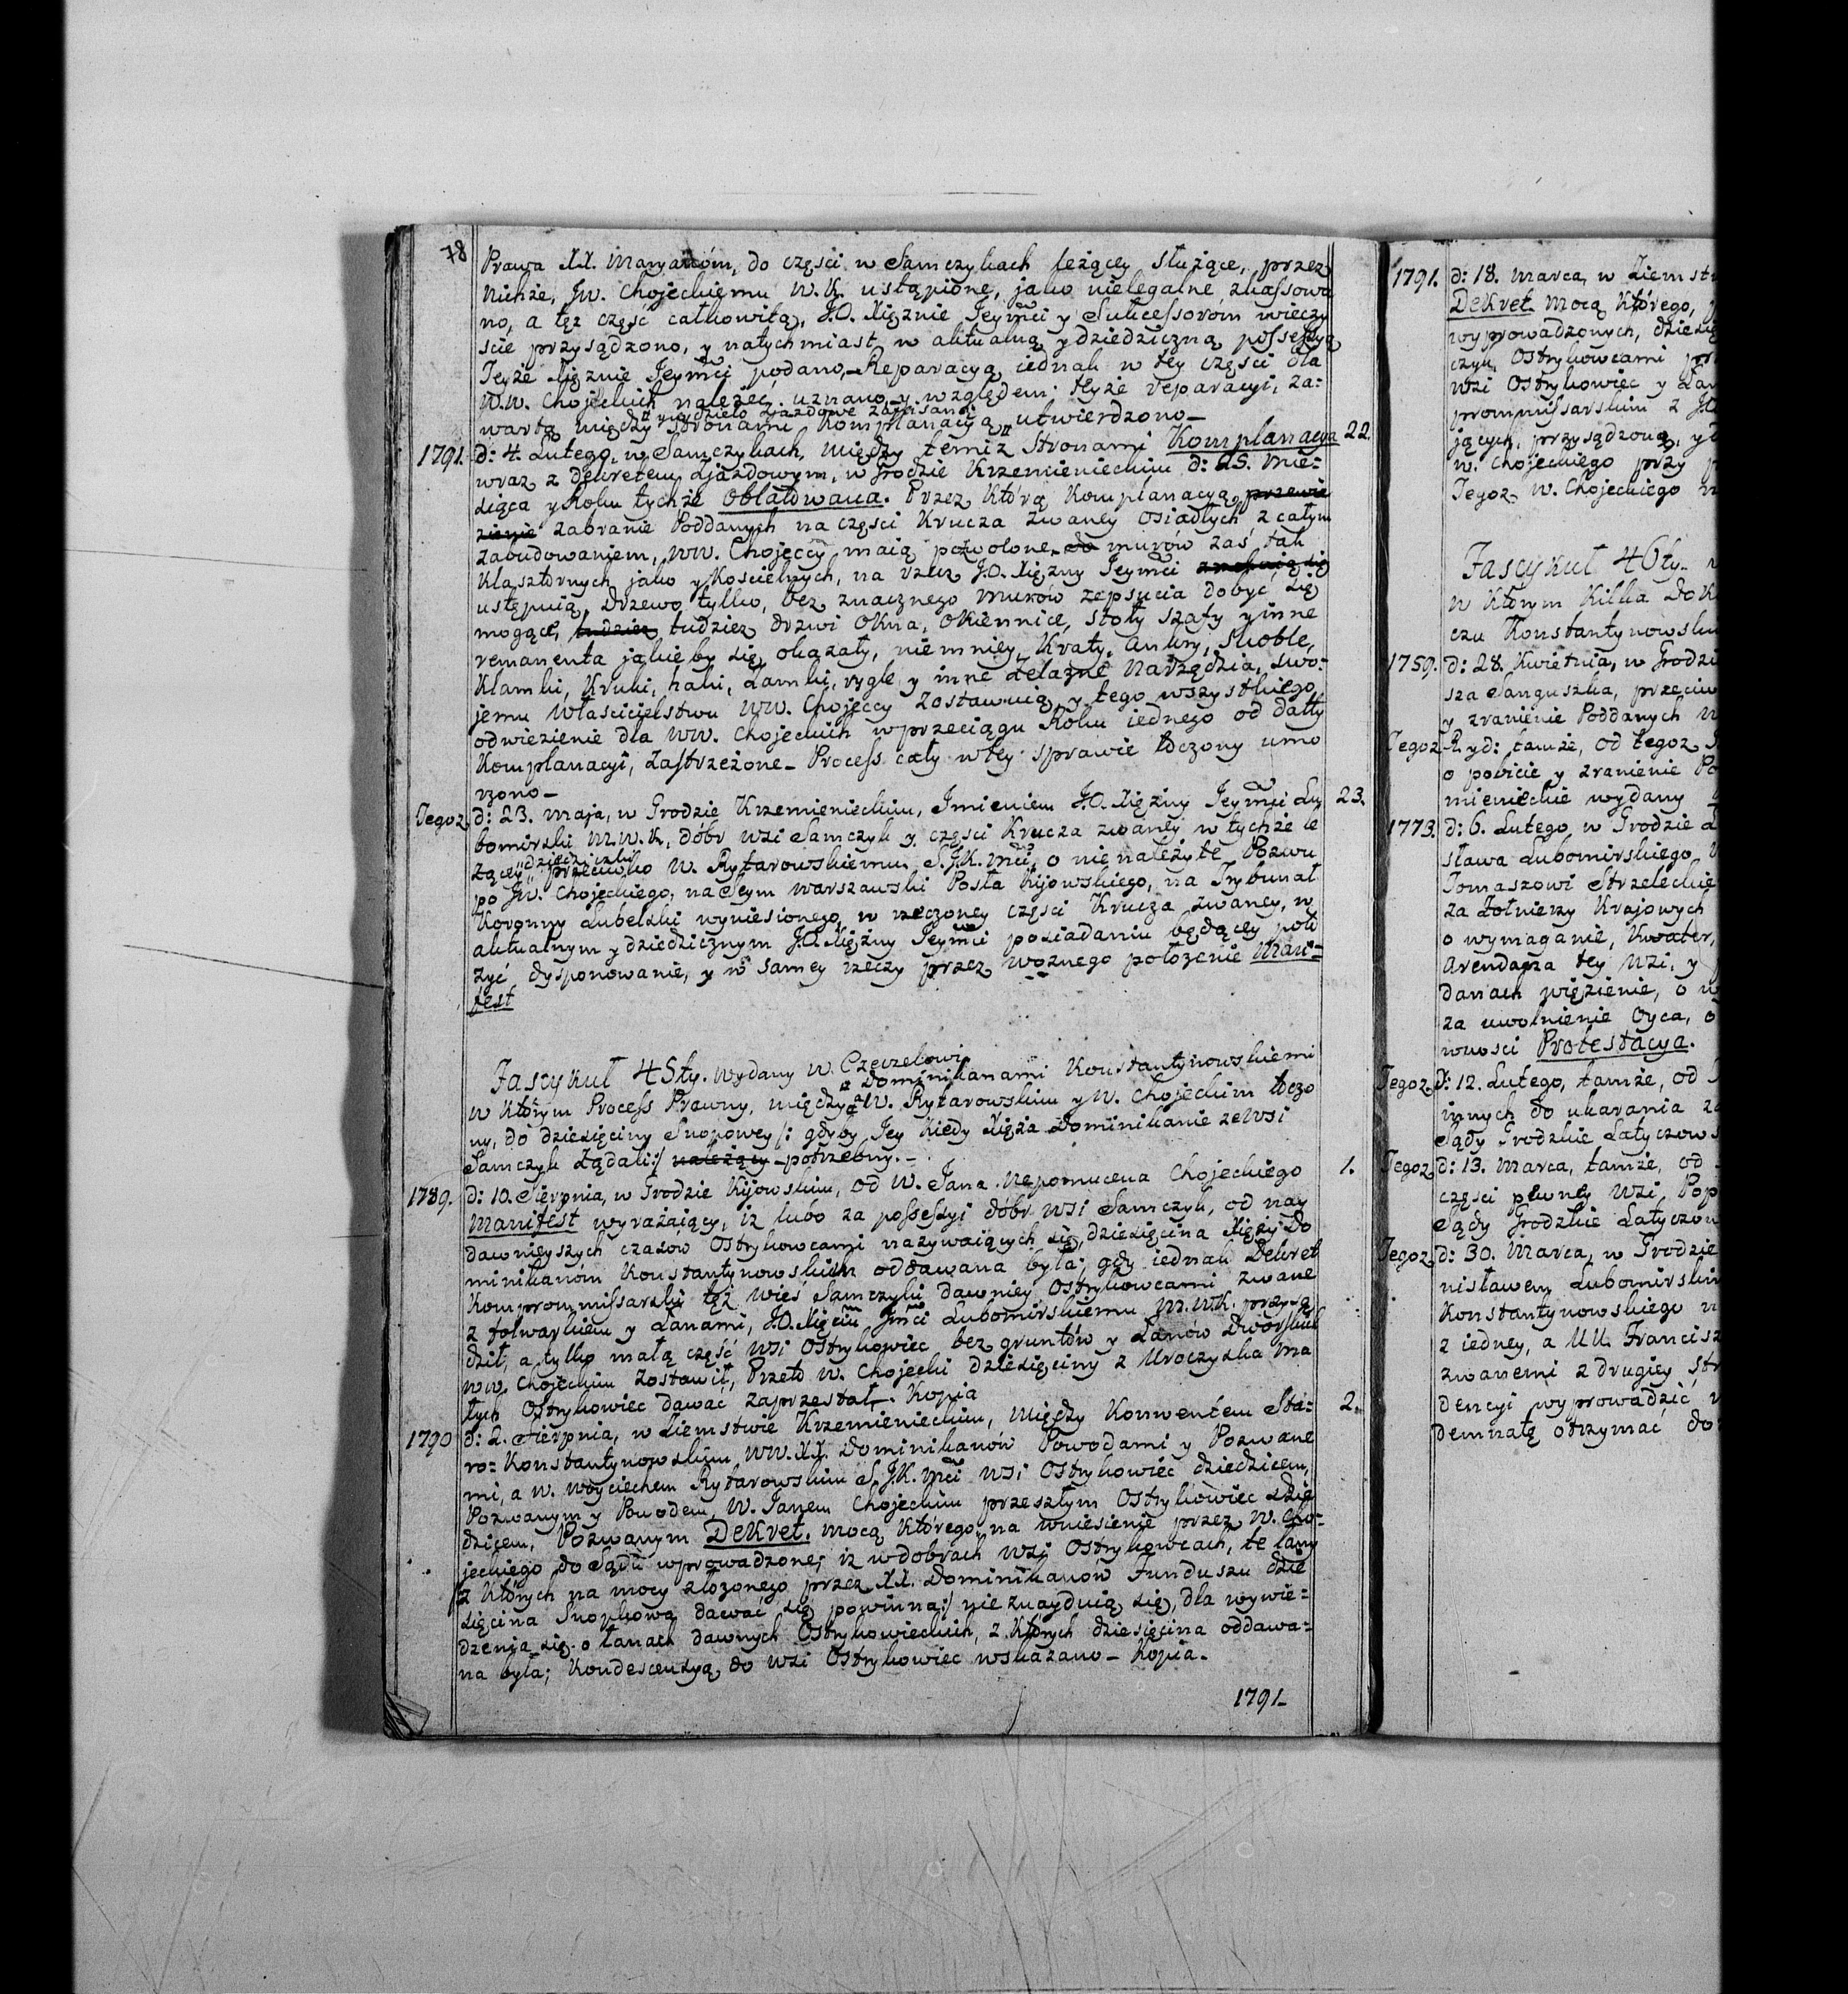 78
Prawa XX. Maryanów, do części w Samczykach leżącey służące, przez
Nichże, Jw. Chojeckiemu W.K. ustąpione, jako nielegalne, zkassowa
no, a tęż część całkowitą, J.O. Xiężnie Jeymci y Sukcessorom wieczy
ście przysądzono, y natychmiast w aktualną y dziedziczną possessyą
Teyże Xiężnie Jeymci podano,- Reparacyą iednak w tey części dla
W.W. Chojeckich należeć uznano, y względem teyże reparacyi, za-
y w dziele zjazdowe zapisaną
wartą między stronami Komplanacyą utwierdzono-
1791. d: 4. Lutego, w Samczykach, między temiż Stronami Komplanacya 22.
wraz z Dekretem Zjazdowym, w Grodzie Krzemienieckim d: 25. Mie-
siąca y Roku tychże Oblatowana. Przez którą Komplanacyą, przewie
zienie zabranie Poddanych na części Krucza zwaney osiadłych z całym
zabudowaniem, WW. Chojeccy maią pozwolone, do murów zaś tak
Klasztornych jako y Kościelnych, na rzecz J.O. Xiężny Jeymci
ustępuią, drzewo tylko, bez znacznego murów zepsucia dobyć się
mogące, tudzież tudzież drzwi okna, okiennice, stoły szafy y inne
remanenta jakieby się okazały, niemniey Kraty, ankry, skoble,
Klamki, Kruki, haki, zamki, rygle y inne żelazne narzędzia, swo-
jemu właścicielstwu WW. Chojeccy zostawuią, y tego wszystkiego
odwiezienie dla WW. Chojeckich w przeciągu Roku iednego od datty
Komplanacyi, zastrzeżone- Process cały w tey sprawie toczony umo
rzono-
Tegoż d: 23. Maja, w Grodzie Krzemienieckim, Imieniem J.O. Xiężny Jeymci Lu 23.
bomirski M.W.K, dóbr wsi Samczyk y części Krucza zwaney w tychże le
dziedziczki
żącey przeciwko W. Rytarowskiemu S.J.K. Mci, o nienależyte Pozwu
po Jw. Chojeckiego, na Seym Warszawski Posła Kijowskiego, na Trybunał
Koronny Lubelski wyniesionego, w rzeczoney części Krucza zwaney, w
aktualnym y dziedzicznym J.O. Xiężny Jeymci posiadaniu będącey poło
żyć dysponowanie, y w samey rzeczy przez woznego położenie Mani-
fest
Fascykuł 45ty. wydany W. Czeczelowi
Dominikanami Konstantynowskiemi
w którym Process Prawny, między W. Rytarowskim y W. Chojeckim toczo
ny, do dziesięciny Snopowey /: gdyby Jey kiedy Xięża Dominikanie ze Wsi
Samczyk żądali:/ należący potrzebny.-
1789. d: 10. Sierpnia, w Grodzie Kijowskim, od W. Jana Nepomucena Chojeckiego 1.
Manifest wyrażaiący, iż lubo za possessyi dóbr wsi Samczyk, od nay
dawnieyszych czasów Ostrykowcami nazywaiących się, dziesięcina Xięży Do
minikanóm Konstantynowskim oddawana była; gdy iednak Dekret
Kompromissarski też wieś Samczyki dawniey Ostrykowcami zwane
z folwarkiem y Łanami, J.O. Xięciu Jmci Lubomirskiemu M.W.K. przysą
dził, a tylko małą część wsi Ostrykowiec bez gruntów y Łanów Dworskich
WW. Chojeckim zostawił, Przeto W. Chojecki dziesięciny z Uroczyska Ma
łych Ostrykowiec dawać zaprzestał. Kopia
1790 d: 2. Sierpnia, w Ziemstwie Krzemienieckim, między Konwentem Sta- 2.
ro-Konstantynowskim WW.XX. Dominikanów Powodami y Pozwane
mi, a W. Woyciechem Rytarowskim S.J.K. Mci wsi Ostrykowiec dziedzicem,
Pozwanym y Powodem, W. Janem Chojeckim przeszłym Ostrykowiec dzie
dzicem, Pozwanym Dekret. mocą którego, na wniesienie przez W. Cho-
jeckiego do Sądu wprowadzone; iż w dobrach wsi Ostrykowcach, te łany
/z których na mocy złożonego przez XX. Dominikanów Funduszu dzie
sięcina Snopkowa dawać się powinna:/ nie znayduią się, dla wywie-
dzenia się o łanach dawnych Ostrykowieckich, z których dziesięcina oddawa-
na była; Kondescensyą do wsi Ostrykowiec wskazano- Kopia.
1791-
1791. d: 18. Marca, w Ziemst
Dekret mocą którego,
wyprowadzonych, dziesię
czyk Ostrykowcami
wsi Ostrykowiec y Łan
prommissarskim z J.O
jących, przysądzoną, y
W. Chojeckiego przy
Tegoż W. Chojeckiego
Fascykuł 46ty.
w którym Kilka Do
czu Konstantynowsk
1759. d: 28. Kwietnia, w Grodzi
sza Sanguszka, przeciw
y zranienie Poddanych
Tegoż R. y d: tamże, od tegoż
o pobicie y zranienie Po
mienieckie wydany
1773. d: 6. Lutego w Grodzie
sława Lubomirskiego
Tomaszowi Strzeleckie
za żołnierzy Krajowych
o wymaganie, Kwater,
Arendarza tey wsi, y
danach więzienie, o
za uwolnienie Oyca, o
wności Protestacya.
Tegoż d: 12. Lutego, tamże, od
innych do ukarania
Sądy Grodzkie Łatyczow
Tegoż d: 13. Marca, tamże, od
części pewney wsi Pop
Sądy Grodzkie Łatyczow
Tegoż d: 30. Marca, w Grodzie
nisławem Lubomirskim
Konstantynowskiego
z iedney, a UU. Francisz
zwanemi z drugiey str
dencyi wyprowadzić
Demnatę otrzymać do